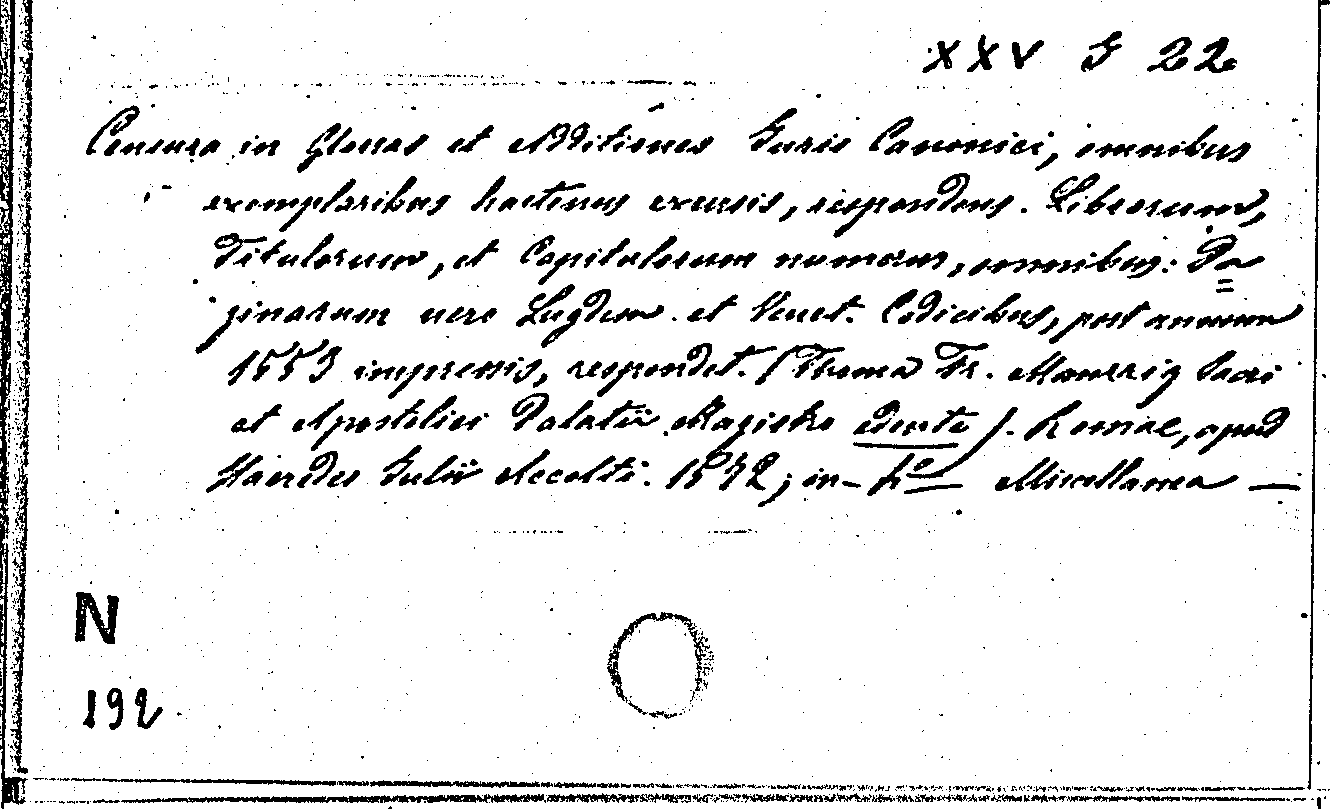 XXV G 22
Censura in Glossas et Additiones Juris Canonici, omnibus
exemplaribus hactenus excusis, respondens. Librorum,
Titulorum, et Capitulorum numerus, omnibus: Pa=
ginarum vero Lugdun. et Venet. Codicibus, post annum
1553 impressis, respondet. (Thoma Fr. Manrriq Sacri
et Apostolici Palatii Magistro edente). Romae, apud
Haerdes Julii Accolti. 1572; in-4º Miscellanea —
N
192